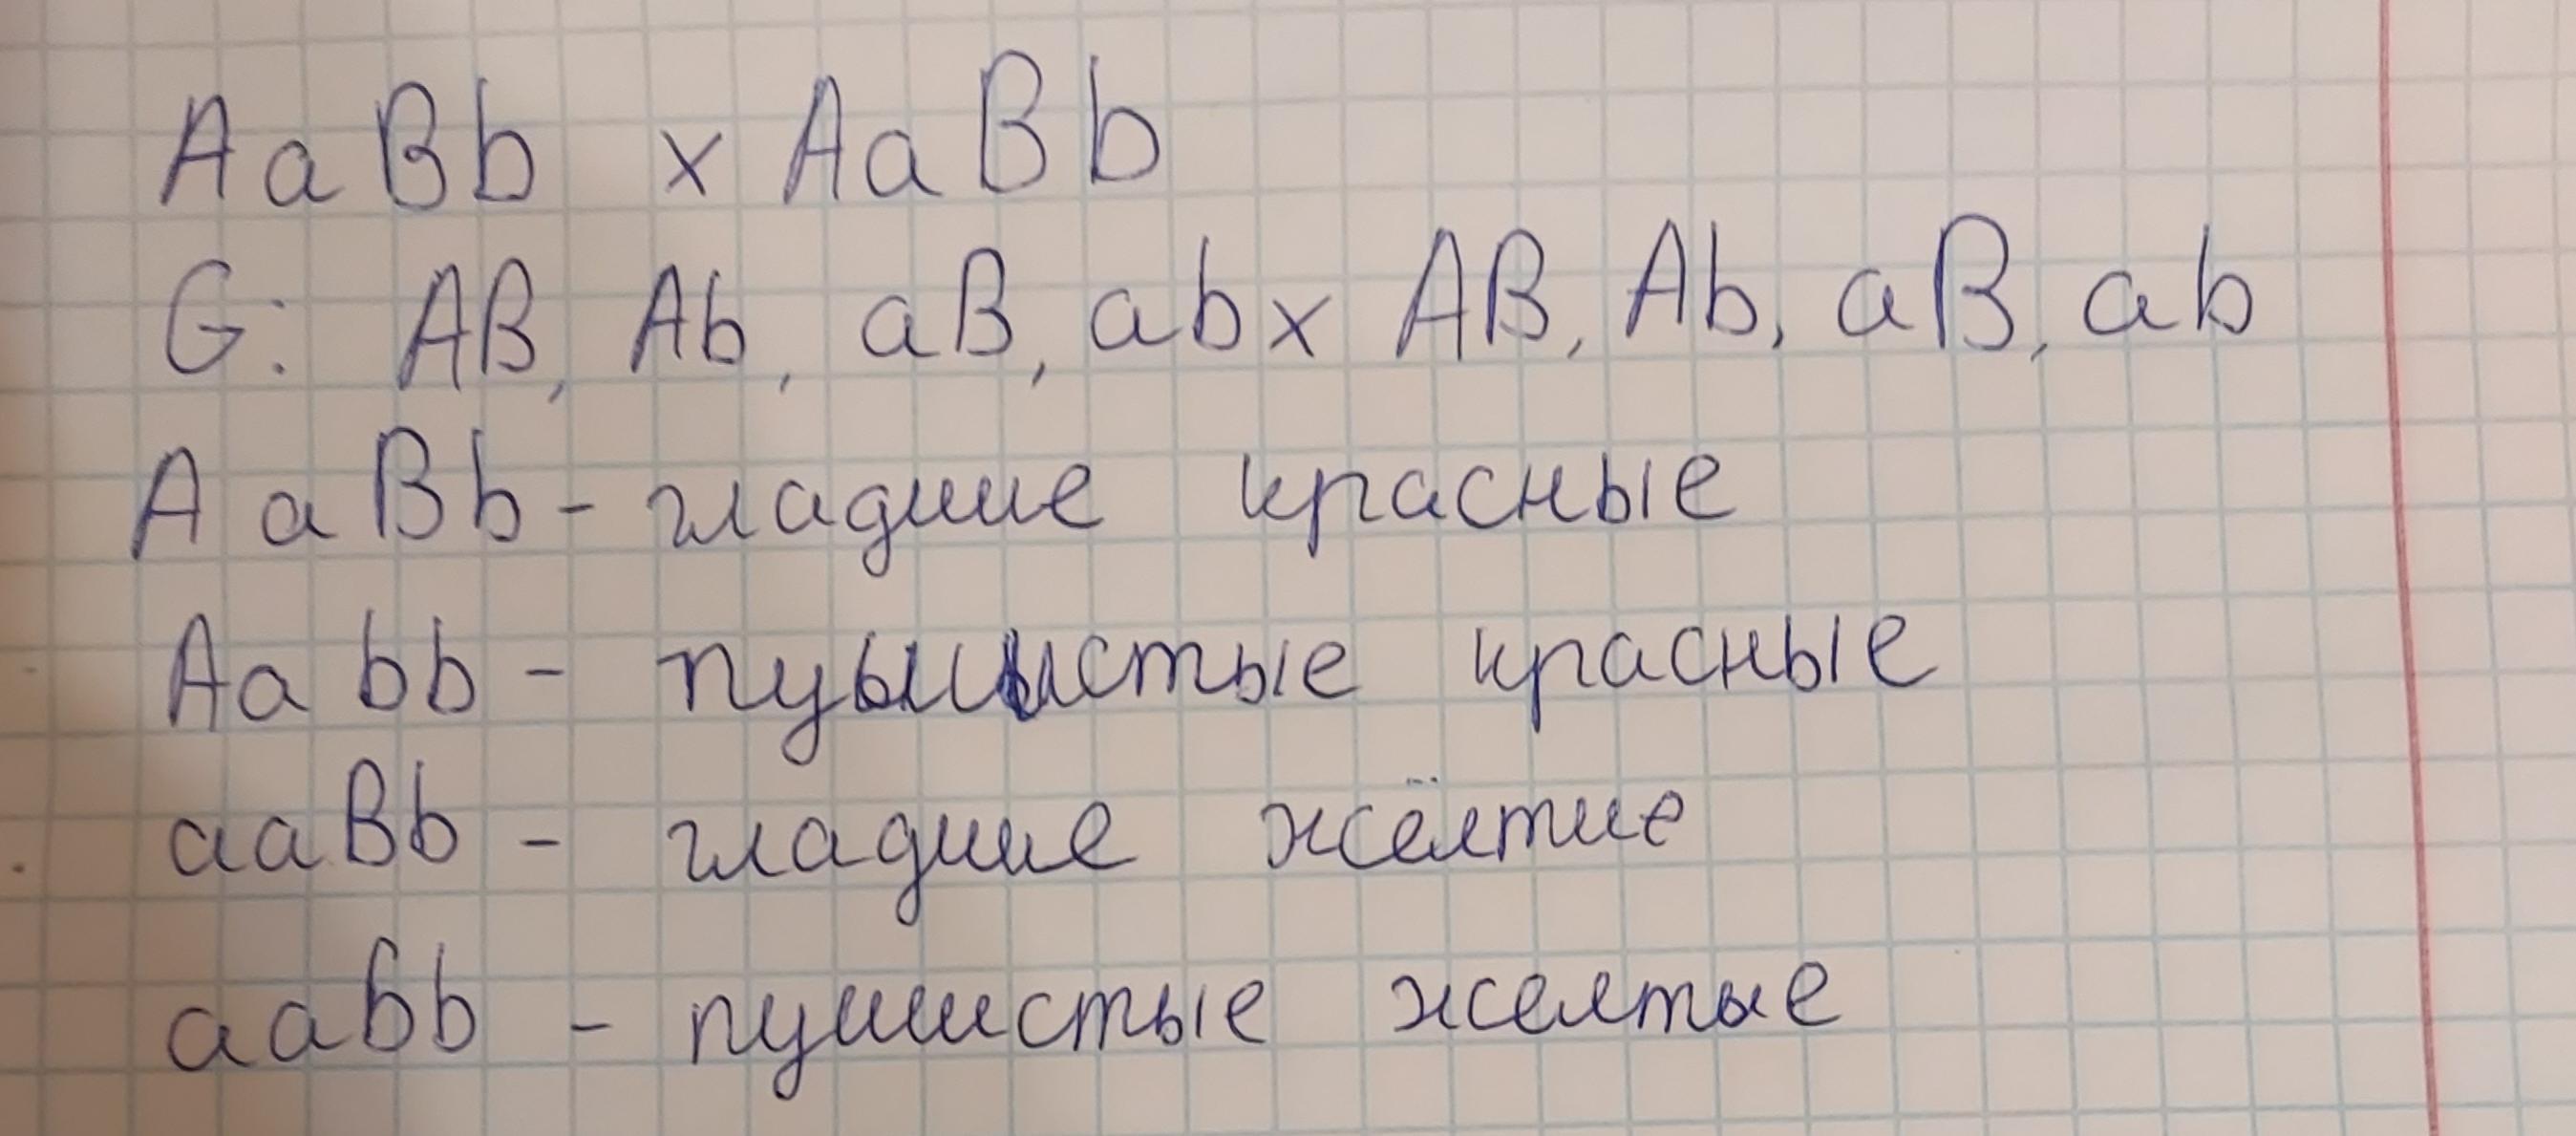 AaBb x AaBb
G: AB, Ab, aB, ab x AB, Ab, aB, ab
AaBb - гладкие красные
Aabb - пушистые красные
aaBb - гладкие жёлтие
aabb - пушистые желтые